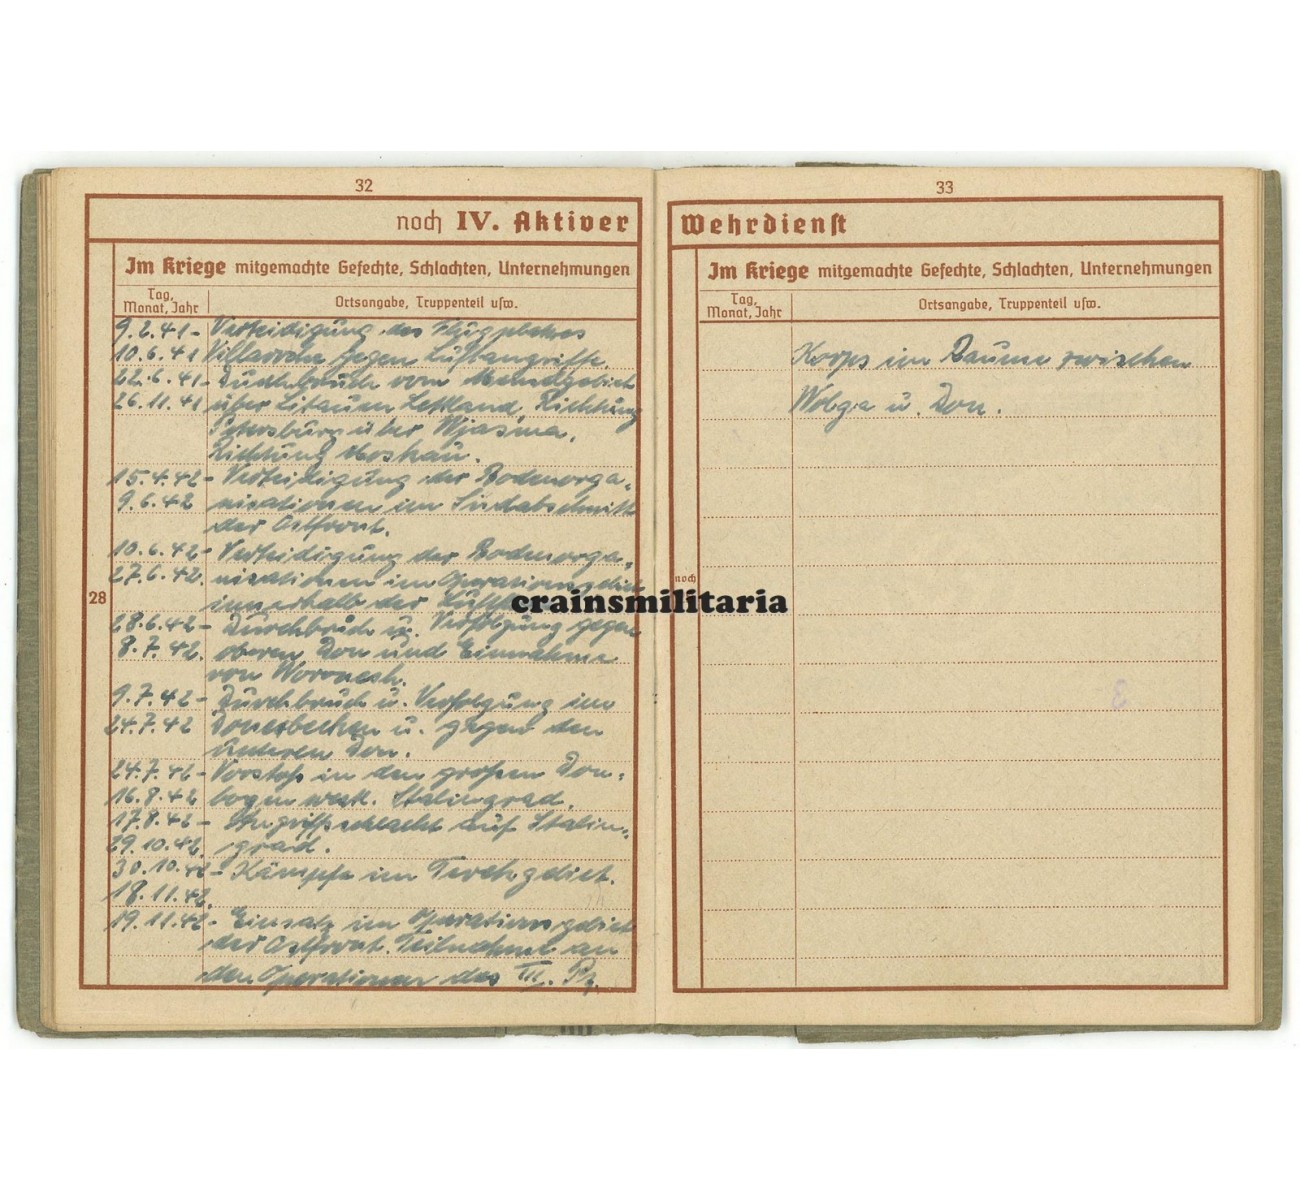 32
noch IV. Aktiver
Im Kriege mitgemachte Gefechte, Schlachten, Unternehmungen
Tag, Monat, Jahr
Ortsangabe, Truppenteil usw.
9.2.41- Verteidigung des Flugplatzes
10.6.41 Villaroche gegen Luftangriffe.
22.6.41- Durchbruch vom Memelgebiet
26.11.41 über Litauen Lettland, Richtung
Petersburg über Wjasma,
Richtung Moskau.
15.4.42- Verteidigung der Bodenorga-
9.6.42 nisationen im Südabschnitt
der Ostfront.
10.6.42- Verteidigung der Bodenorga-
27.6.42. nisationen im Operationsgebiet
innerhalb der
28.6.42- Durchbruch u. Verfolgung gegen
8.7.42. oberen Don und Einnahme
von Woronesh.
9.7.42- Durchbruch u. Verfolgung im
24.7.42 Donezbecken u. gegen den
unteren Don.
24.7.42- Vorstoß in den großen Don-
16.8.42 bogen westl. Stalingrad.
17.8.42- Angriffsschlacht auf Stalin-
29.10.42. grad.
30.10.42- Kämpfe im Terekgebiet.
18.11.42.
19.11.42- Einsatz im Operationsgebiet
der Ostfront. Teilnahme an
den Operationen des III. Pz.
28
33
Wehrdienst
Im Kriege mitgemachte Gefechte, Schlachten, Unternehmungen
Tag, Monat, Jahr
Ortsangabe, Truppenteil usw.
Korps im Raume zwischen
Wolga u. Don.
noch
crainsmilitaria